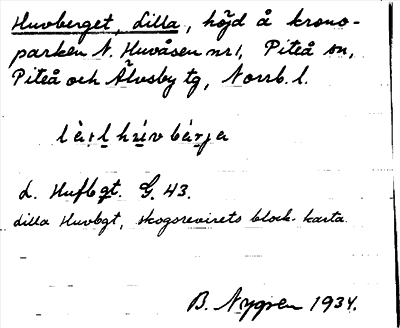 Huvberget, Lilla, höjd å krono-
parken N. Huvåsen nr 1, Piteå sn,
Piteå och Älvsby tg, Norrb. l.
d. Hufbgt. G. 43.
Lilla Huvbgt, skogsrevirets block-karta.
B. Nygren 1934.